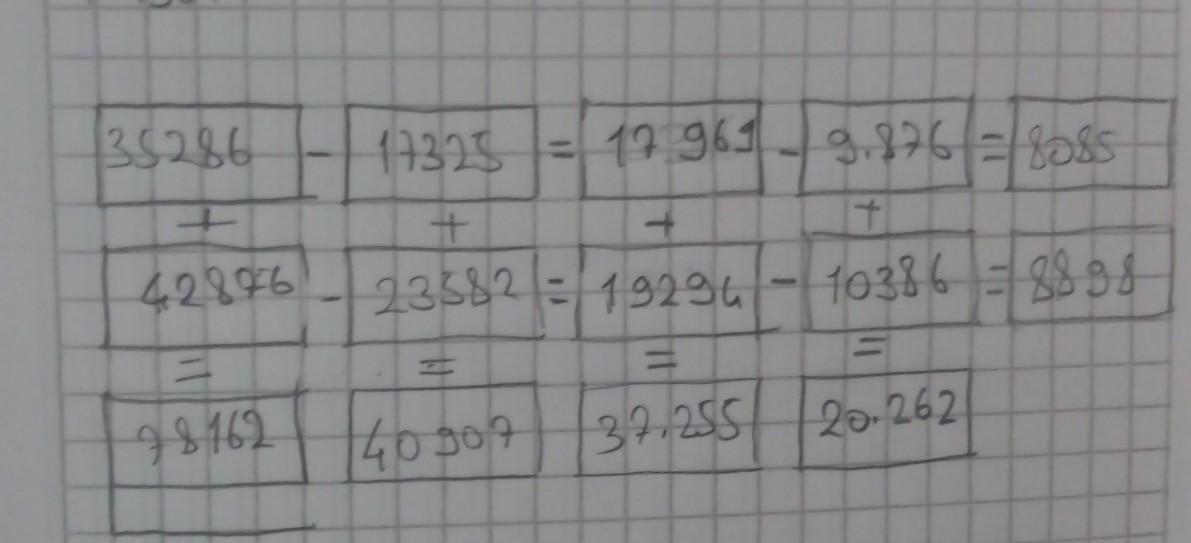 35286 - 17325 = 17.961 - 9.876 = 8085
+ + + +
42876 - 23582 = 19294 - 10386 = 8898
= = = =
78162 40907 37.255 20.262